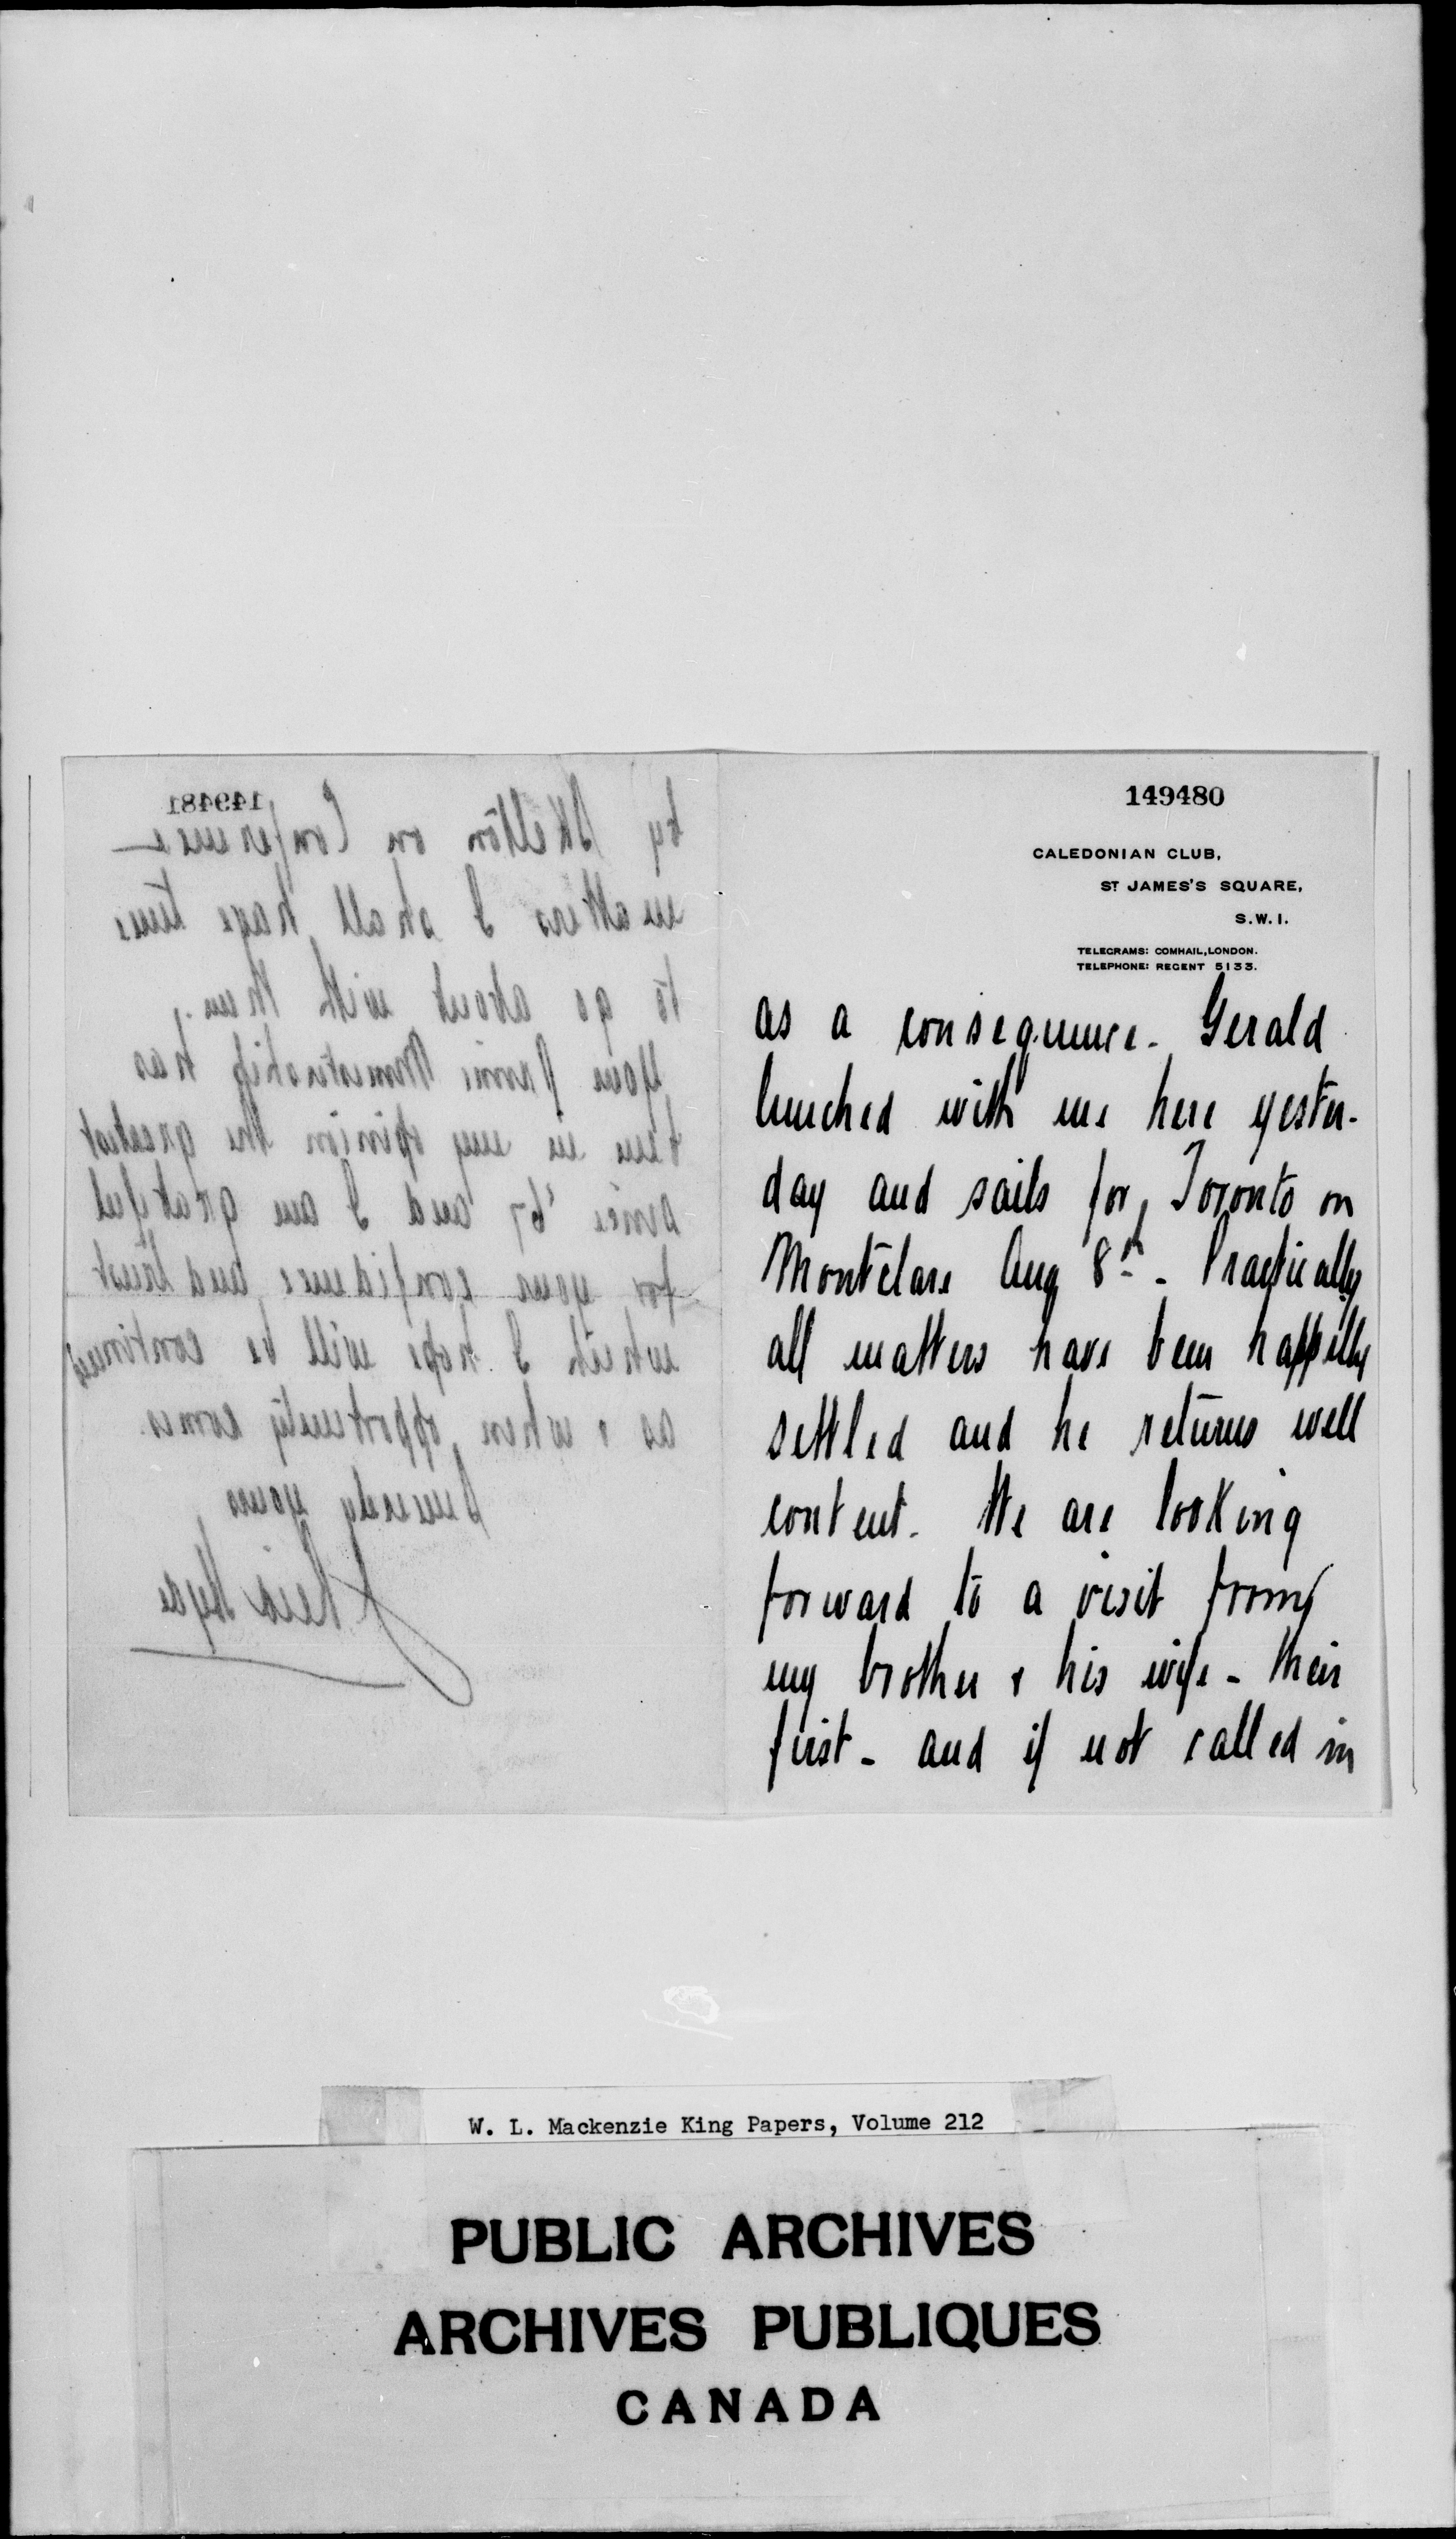 149481
by Skelton on Conference
matters I shall have time
to go about with them.
Your Prime Ministership has
been in my opinion the greatest
since '67 and I am grateful
for your confidence and trust
which I hope will be continued
as & when opportunity comes.
Sincerely yours
Reid Hyde
149480
CALEDONIAN CLUB,
ST JAMES'S SQUARE,
S.W.1.
TELEGRAMS: COMHAIL, LONDON.
TELEPHONE: REGENT 5133.
as a consequence. Gerald
lunched with me here yester-
day and sails for Toronto on
Montclare Aug 8th - Practically
all matters have been happilly
settled and he returns well
content. We are looking
forward to a visit from
my brother & his wife - their
first - and if not called in
W. L. Mackenzie King Papers, Volume 212
PUBLIC ARCHIVES
ARCHIVES PUBLIQUES
CANADA